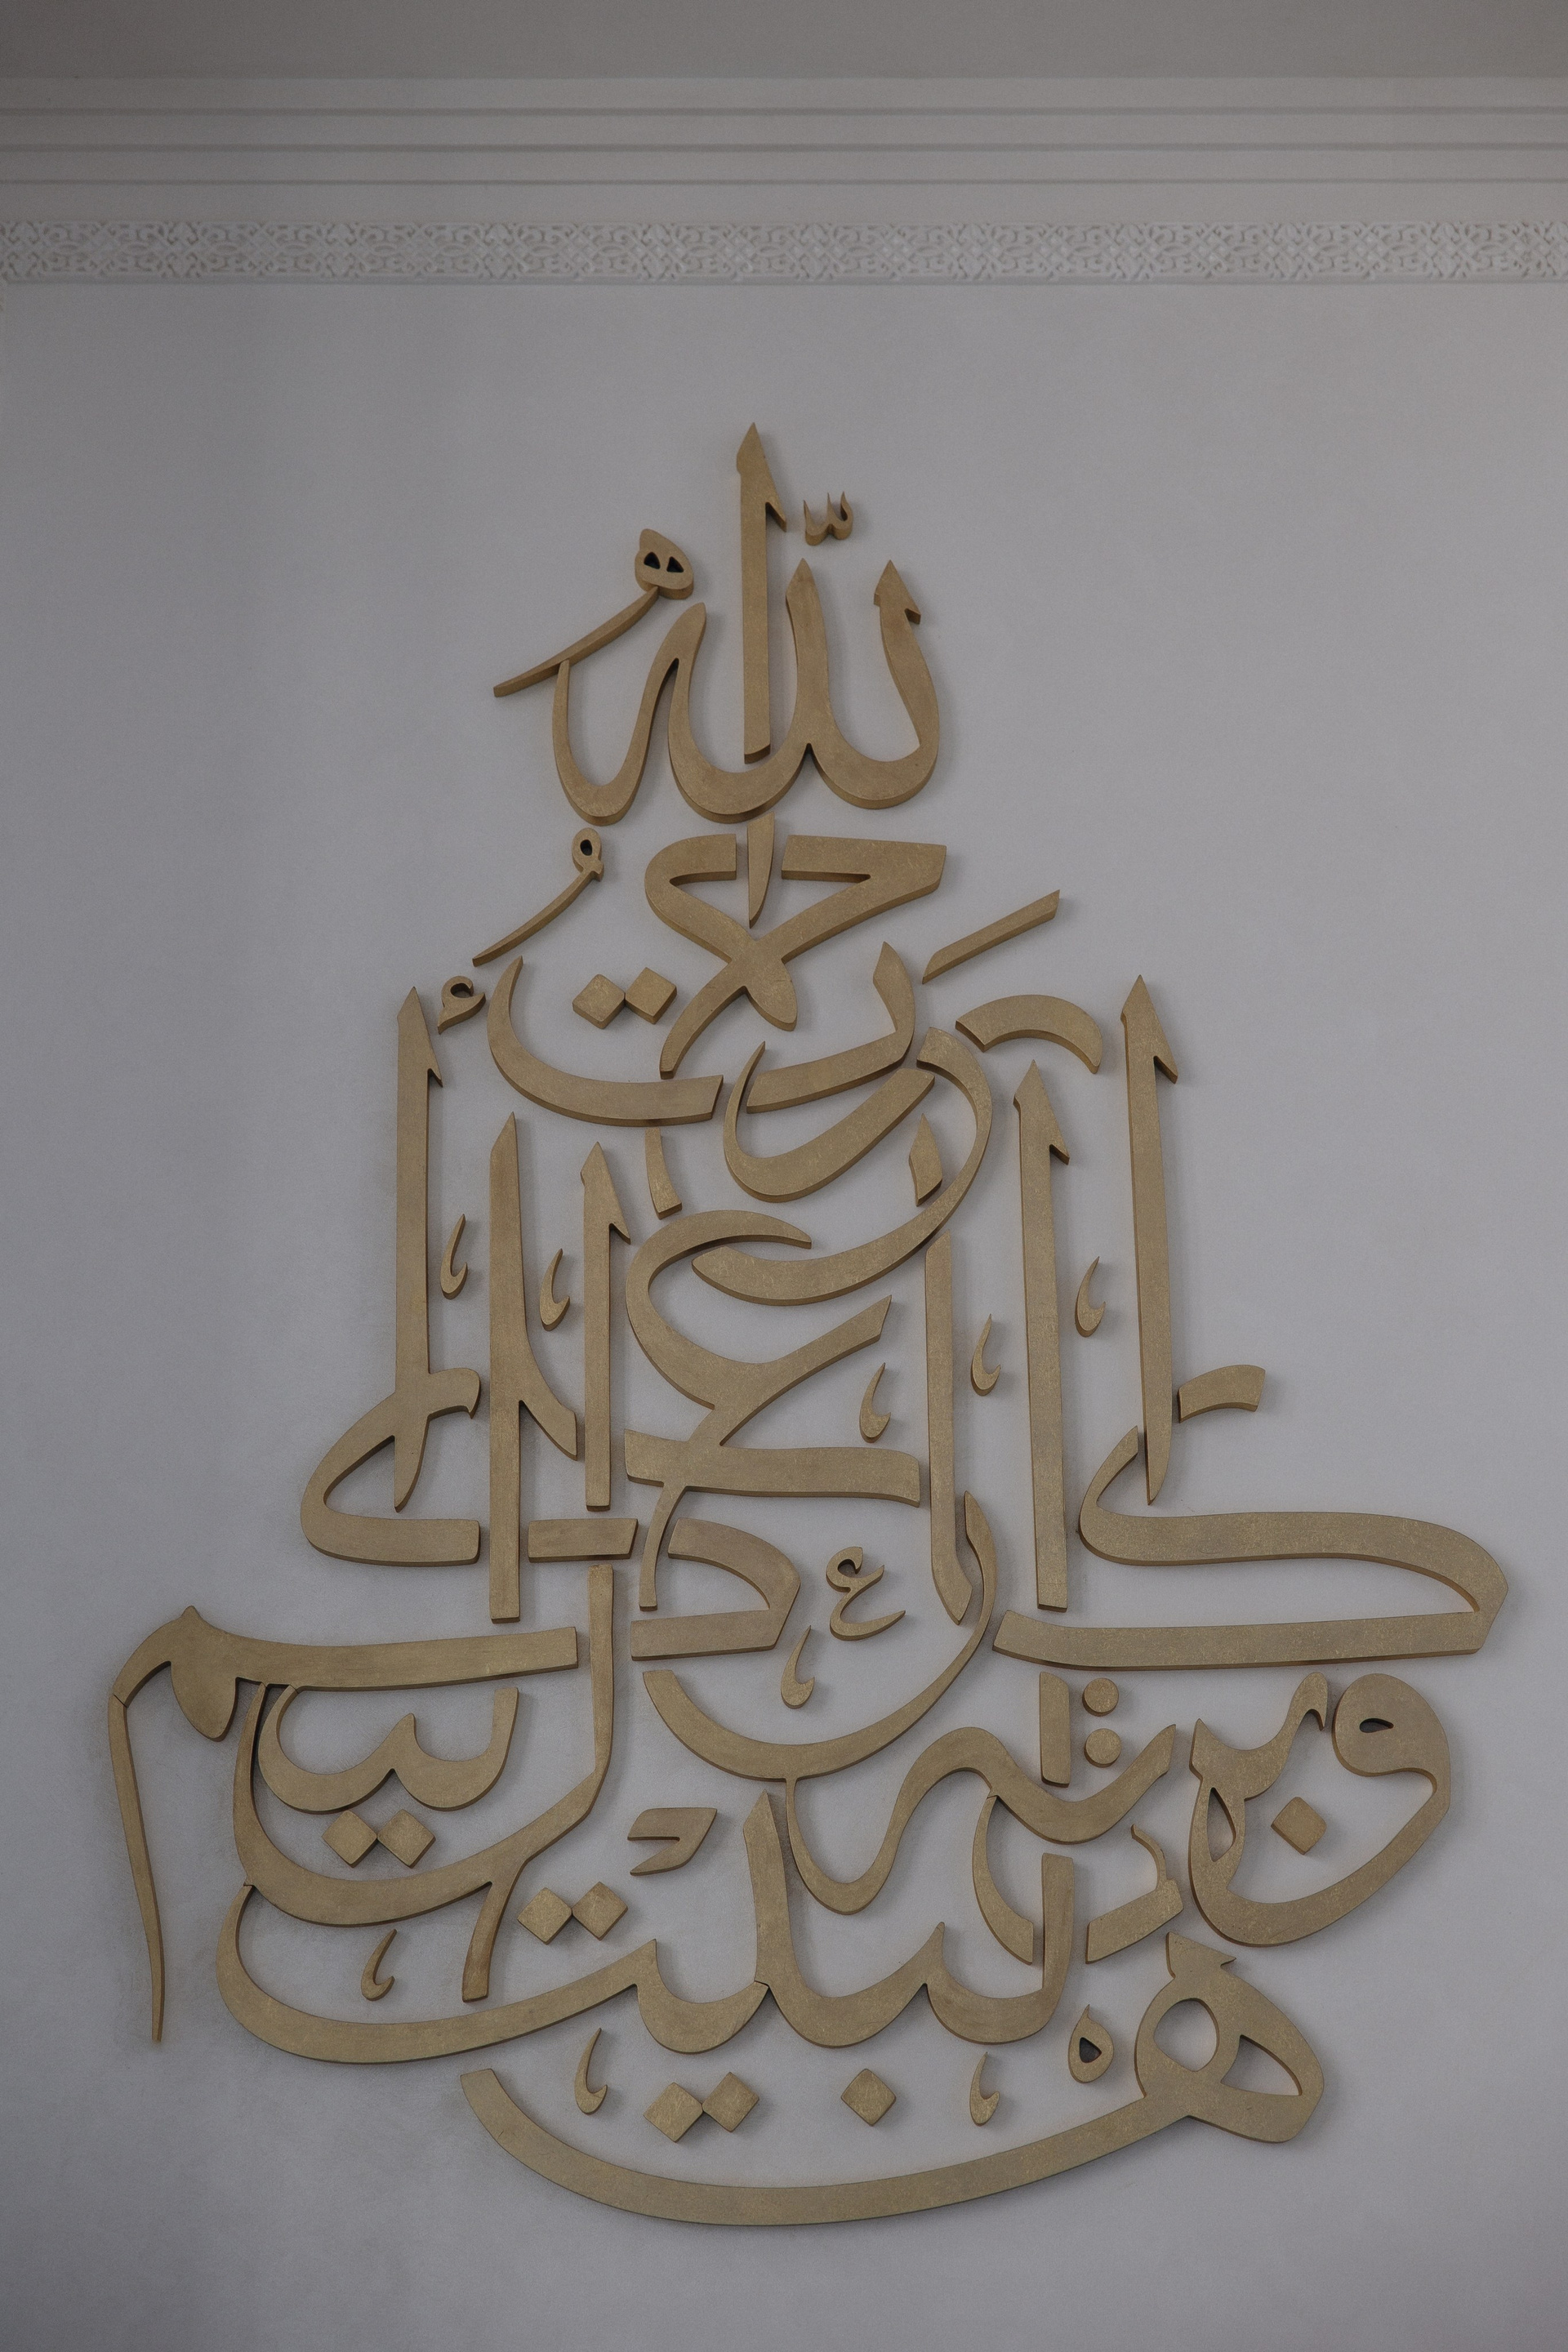 رحمت الله وبركاته عليكم أهل البيت